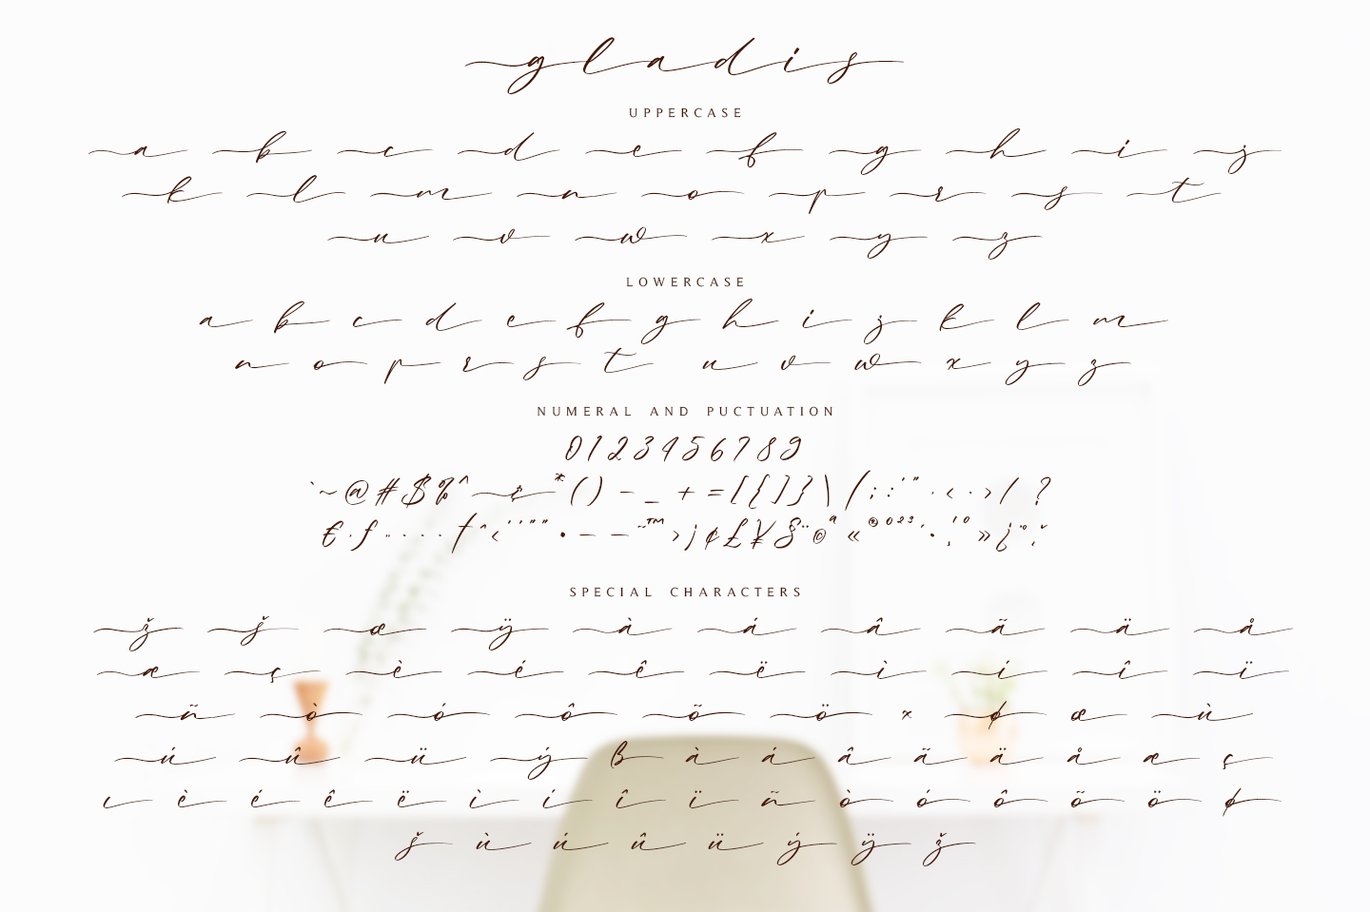 gladis
UPPERCASE
a b c d e f g h i j
k l m n o p r s t
u v w x y z
LOWERCASE
a b c d e f g h i j k l m
n o p r s t u v w x y z
NUMERAL AND PUCTUATION
0 1 2 3 4 5 6 7 8 9
` ~ @ # $ % ^ & * ( ) - _ + = [ { ] } \ / ; : ' " . < . > / ?
€ · ƒ „ . . . † ˆ ‹ ' ' " " • – — ˜ ™ › ¡ ¢ £ ¥ § ¨ © ª « ® 0 2 3 ´ · ¸ ¹ º » ¿ ¨ ° ¸ ˇ
SPECIAL CHARACTERS
ž š œ ÿ à á â ã ä å
æ ç è é ê ë ì í î ï
ñ ò ó ô õ ö × ø œ ù
ú û ü ý ß à á â ã ä å æ ç
ı è é ê ë ì í î ï ñ ò ó ô õ ö ø
š ù ú û ü ý ÿ ž